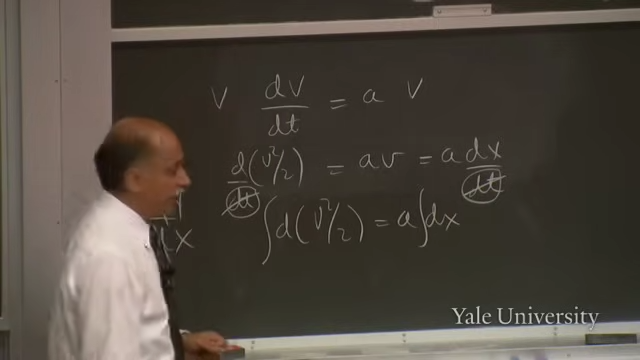 v dv/dt = a v
d/dt (v²/2) = av = a dx/dt
∫ d(v²/2) = a ∫ dx
dx
Yale University